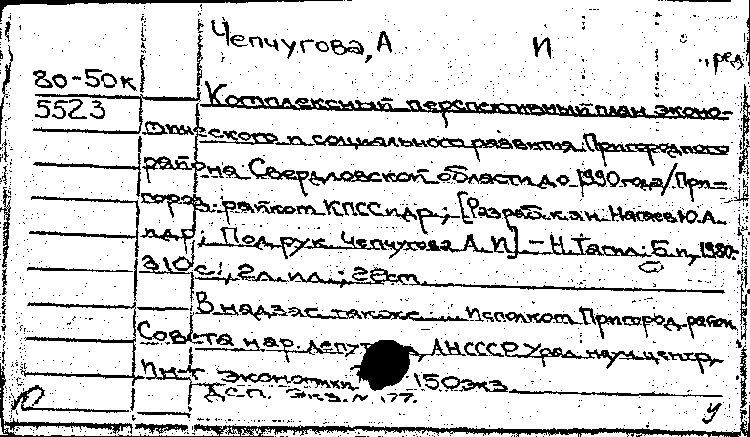 Чепчугова, А И
, ред
80-50к
5523
Комплексный перспективный план эконо-
мического и социального развития Пригородного
района Свердловской области до 1990 года / При-
город. райком КПСС и др.; [Разраб. к.э.н. Нагаев Ю.А.
и др.; Под рук. Чепчугова А.И.] - Н. Тагил: Б.и., 1980.
310 с.: 2 л. ил.;
В надзаг. также: Исполком Пригород. район.
Совета нар. депутатов, АН СССР Урал. науч. центр,
Ин-т экономики 150 экз.
ДСП. Экз. № 177.
О у